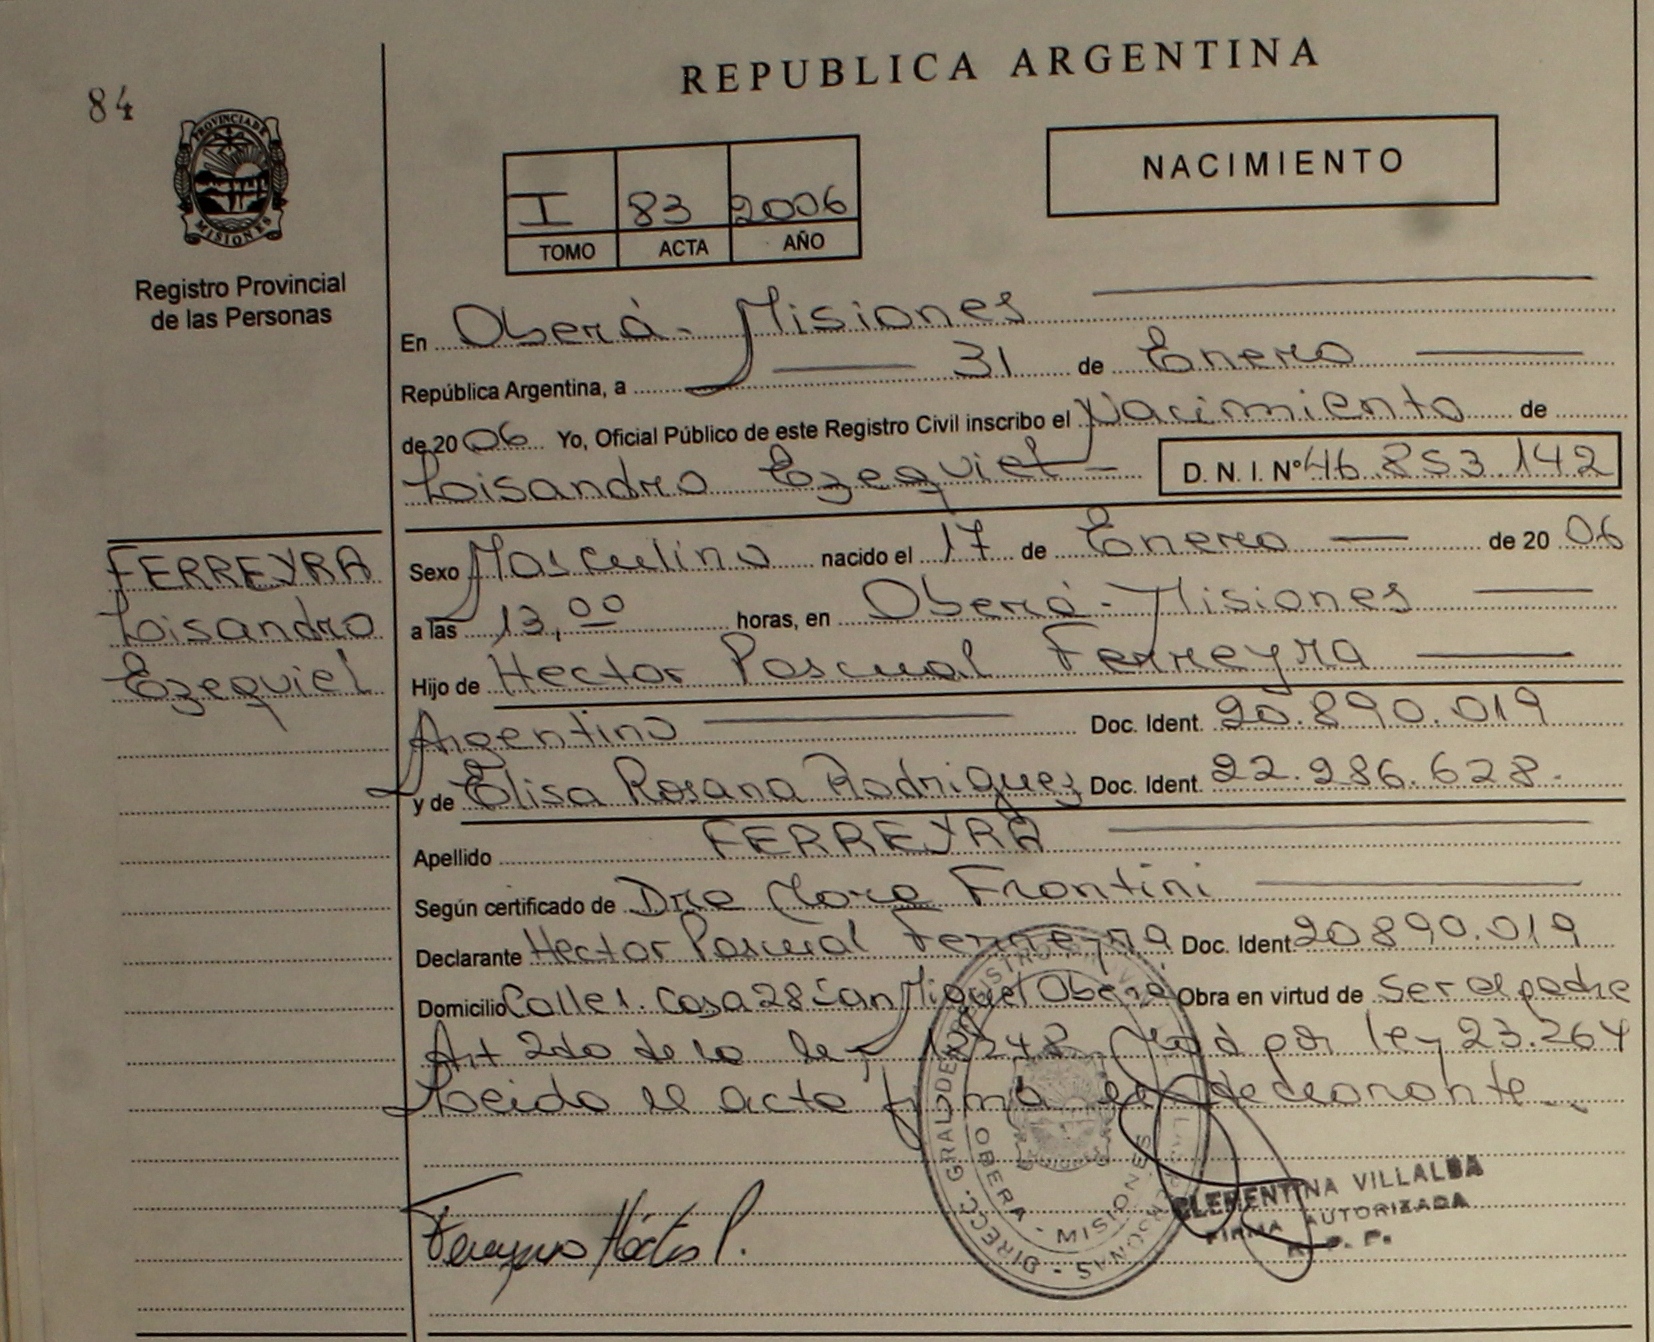 84
REPUBLICA ARGENTINA
PROVINCIA DE
MISIONES
Registro Provincial
de las Personas
I 83 2006
TOMO ACTA AÑO
NACIMIENTO
En Oberá - Misiones
República Argentina, a 31 de Enero
de 2006 Yo, Oficial Público de este Registro Civil inscribo el Nacimiento de
Loisandro Ezequiel D. N. I. Nº 46 853 142
FERREYRA
Loisandro
Ezequiel
Sexo Masculino nacido el 17 de Enero de 20 06
a las 13,00 horas, en Oberá - Misiones
Hijo de Hector Pascual Ferreyra
Argentino Doc. Ident. 20.890.019
y de Elisa Rosana Rodriguez Doc. Ident. 22.286.628.
Apellido FERREYRA
Según certificado de Dra Clara Frontini
Declarante Hector Pascual Ferreyra Doc. Ident. 20890.019
Domicilio Calle 1. Casa 28 San Miguel Oberá Obra en virtud de Ser el padre
Art 2do de la ley por ley 23.264
Leida el acta firma el declarante
OBERA - MISIONES
CLEMENTINA VILLALBA
FIRMA AUTORIZADA
R. P. P.
Ferreyra Héctor P.